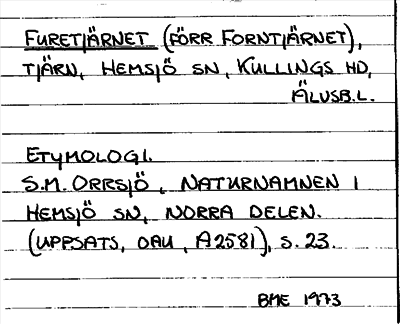 FURETJÄRNET (FÖRR FORNTJÄRNET),
TJÄRN, HEMSJÖ SN, KULLINGS HD,
ÄLVSB.L.
ETYMOLOGI.
S.M. ORRSJÖ, NATURNAMNEN I
HEMSJÖ SN, NORRA DELEN.
(UPPSATS, DAU, A2581), S. 23.
BME 1973